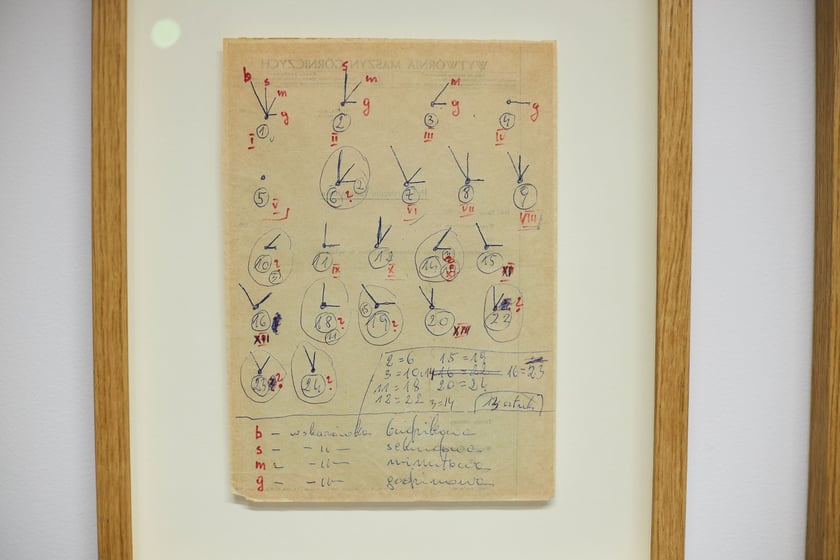 WYTWÓRNIA MASZYN GÓRNICZYCH
b s m g s m g m g g
1 2 3 4
I II III IV
5 6 ? 2 7 8 9
V VI VII VIII
10 ? 3 11 12 14 ? 15
IX X XI
16 18 ? 11 19 ? 15 20 22 ?
XII XIII
23 ? 24 ?
2=6 15=19
3=10 14 16=22 16=23
11=18 20=24
12=22 3=14
b - wskazówka budzikowa
s - -"- sekundowa
m - -"- minutowa
g - -"- godzinowa